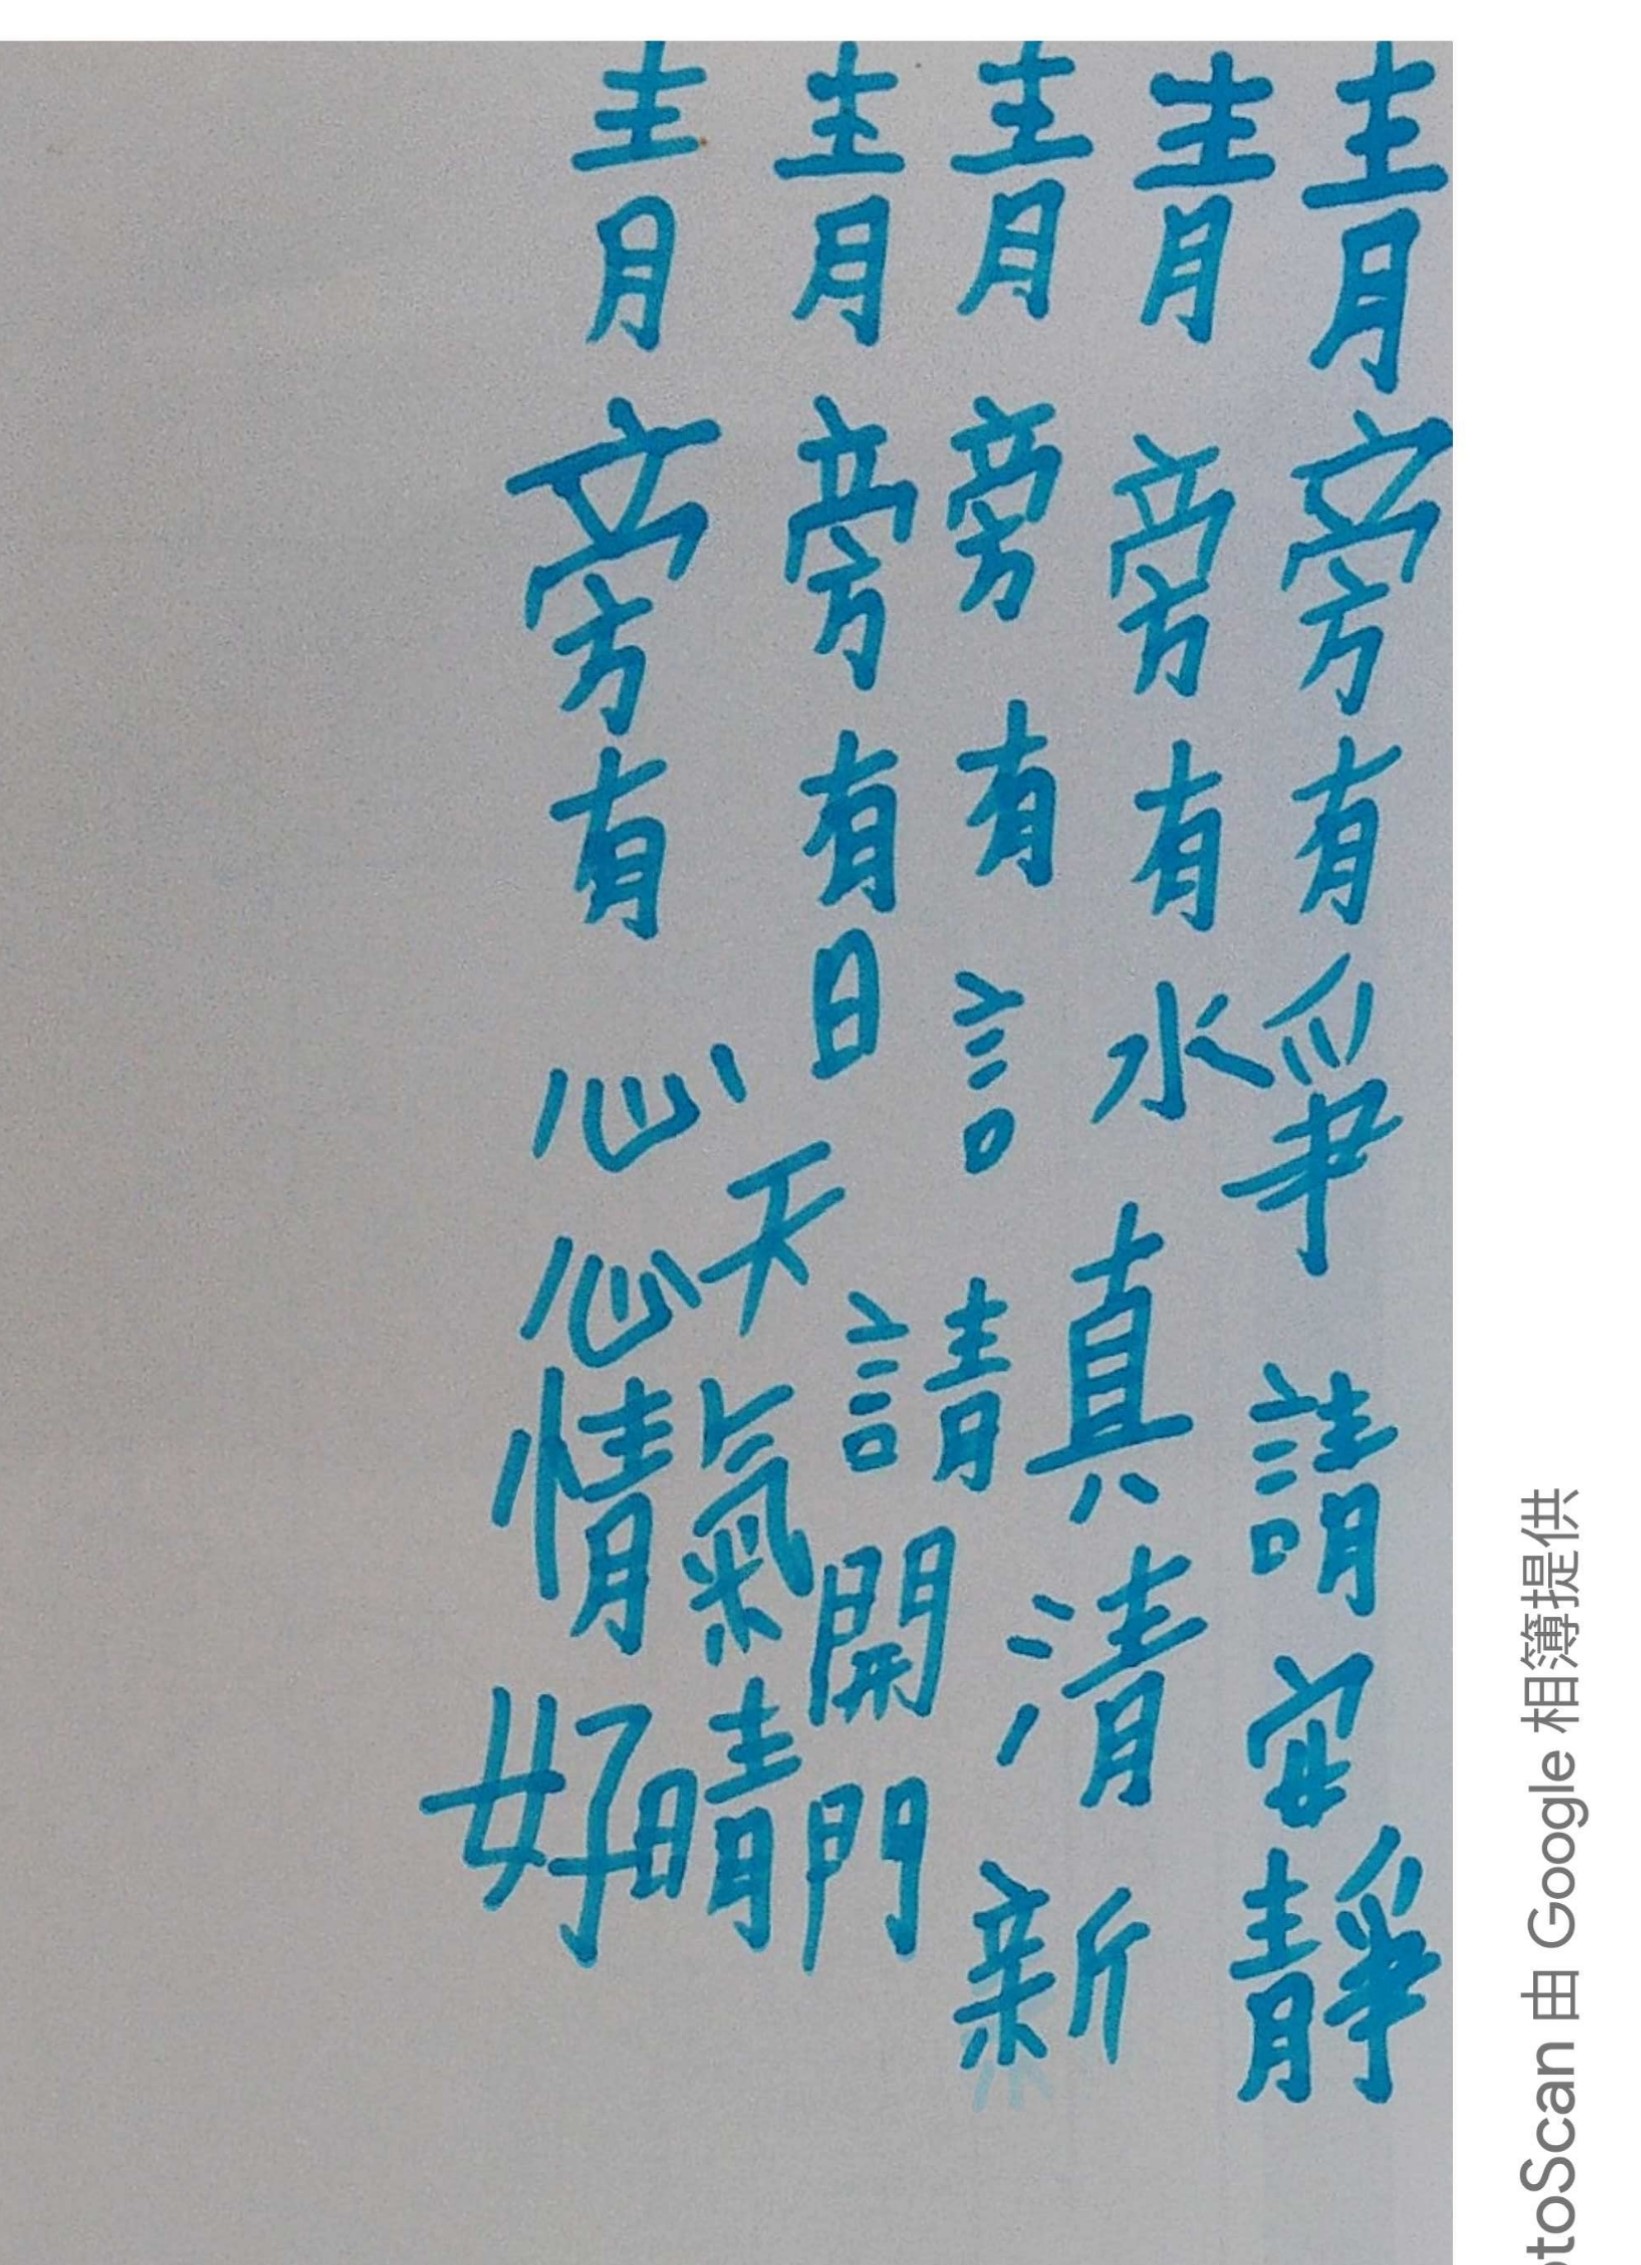 青旁有爭請安靜
青旁有水真清新
青旁有言請開門
青旁有日天氣晴
青旁有心心情好
toScan 由 Google 相簿提供